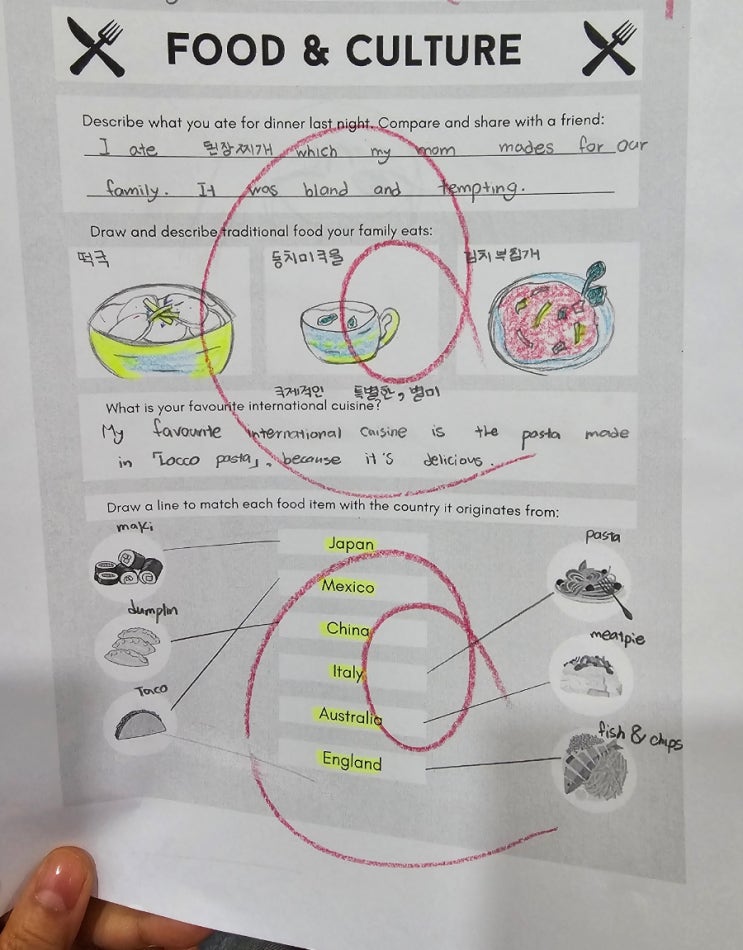 FOOD & CULTURE
Describe what you ate for dinner last night. Compare and share with a friend:
I ate 된장찌개 which my mom mades for our
family. It was bland and tempting.
Draw and describe traditional food your family eats:
떡국 동치미국물 김치부침개
국제적인 특별한, 별미
What is your favourite international cuisine?
My favourite international cuisine is the pasta made
in 「Locco pasta」, because it's delicious.
Draw a line to match each food item with the country it originates from:
maki
Japan
pasta
Mexico
dumplin
China
meatpie
Italy
Taco
Australia
fish & chips
England